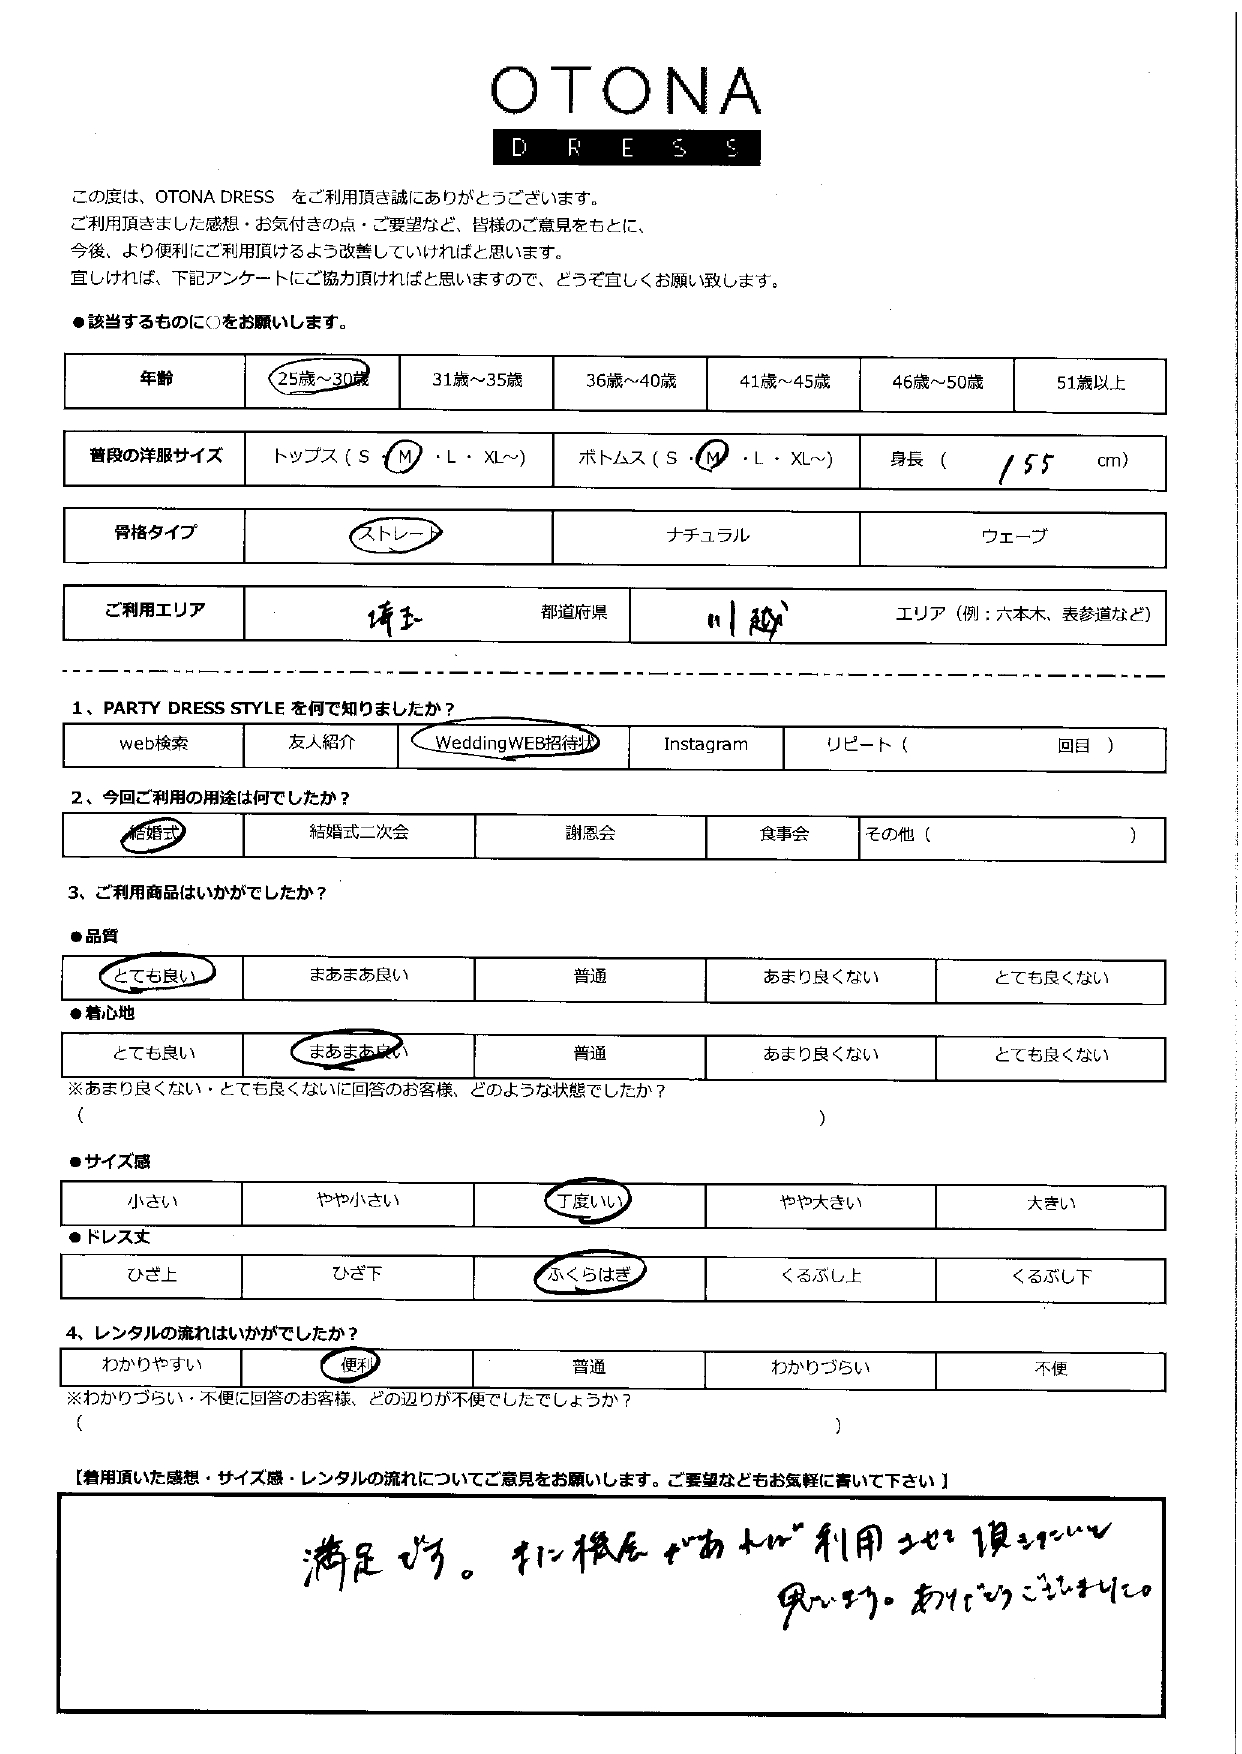 OTONA
DRESS
この度は、OTONA DRESS　をご利用頂き誠にありがとうございます。
ご利用頂きました感想・お気付きの点・ご要望など、皆様のご意見をもとに、
今後、より便利にご利用頂けるよう改善していければと思います。
宜しければ、下記アンケートにご協力頂ければと思いますので、どうぞ宜しくお願い致します。
●該当するものに○をお願いします。
年齢 25歳～30歳 31歳～35歳 36歳～40歳 41歳～45歳 46歳～50歳 51歳以上
普段の洋服サイズ トップス（ S ・ M ・L ・ XL～） ボトムス（ S ・ M ・L ・ XL～） 身長 （ 155 cm）
骨格タイプ ストレート ナチュラル ウェーブ
ご利用エリア 埼玉 都道府県 川越 エリア（例：六本木、表参道など）
1、PARTY DRESS STYLE を何で知りましたか？
web検索 友人紹介 WeddingWEB招待状 Instagram リピート（ 回目 ）
2、今回ご利用の用途は何でしたか？
結婚式 結婚式二次会 謝恩会 食事会 その他（ ）
3、ご利用商品はいかがでしたか？
●品質
とても良い まあまあ良い 普通 あまり良くない とても良くない
●着心地
とても良い まあまあ良い 普通 あまり良くない とても良くない
※あまり良くない・とても良くないに回答のお客様、どのような状態でしたか？
（ ）
●サイズ感
小さい やや小さい 丁度いい やや大きい 大きい
●ドレス丈
ひざ上 ひざ下 ふくらはぎ くるぶし上 くるぶし下
4、レンタルの流れはいかがでしたか？
わかりやすい 便利 普通 わかりづらい 不便
※わかりづらい・不便に回答のお客様、どの辺りが不便でしたでしょうか？
（ ）
【着用頂いた感想・サイズ感・レンタルの流れについてご意見をお願いします。ご要望などもお気軽に書いて下さい 】
満足です。また機会があれば利用させて頂きたいと
思います。ありがとうございました。